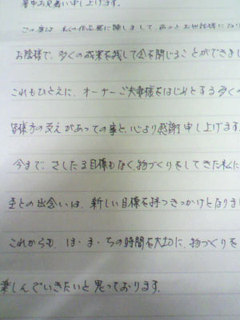 暑中お見舞い申し上げます。
この度は 私の作品展に関しまして 大変お世話様に
お陰様で、多くの成果を残して会を閉じることができまし
これもひとえに、オーナーご夫妻様をはじめとする多くの
皆様方の支えがあっての事と、心より感謝申し上げます。
今まで、さしたる目標もなく、物づくりをしてきた私に
との出会いは、新しい目標を持つきっかけとなりま
これからも は・ま・ちの時間を大切に、物づくりを
楽しんでいきたいと思っております。